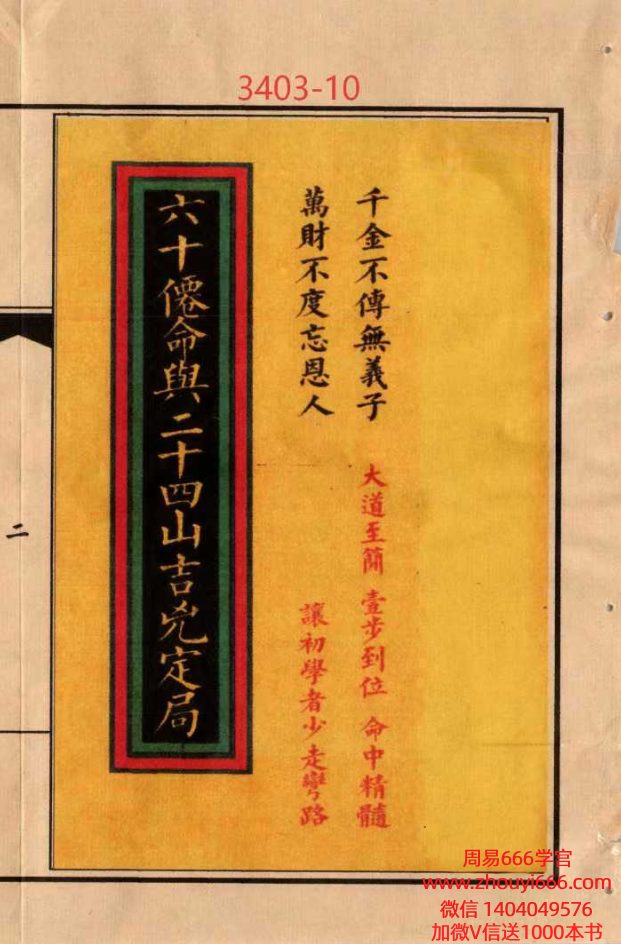 3403-10
千金不傳無義子
萬財不度忘恩人
大道至簡 壹步到位 命中精髓
讓初學者少走彎路
六十僊命與二十四山吉兇定局
二
周易666学官
www.zhouyi666.com
微信 1404049576
加微V信送1000本书